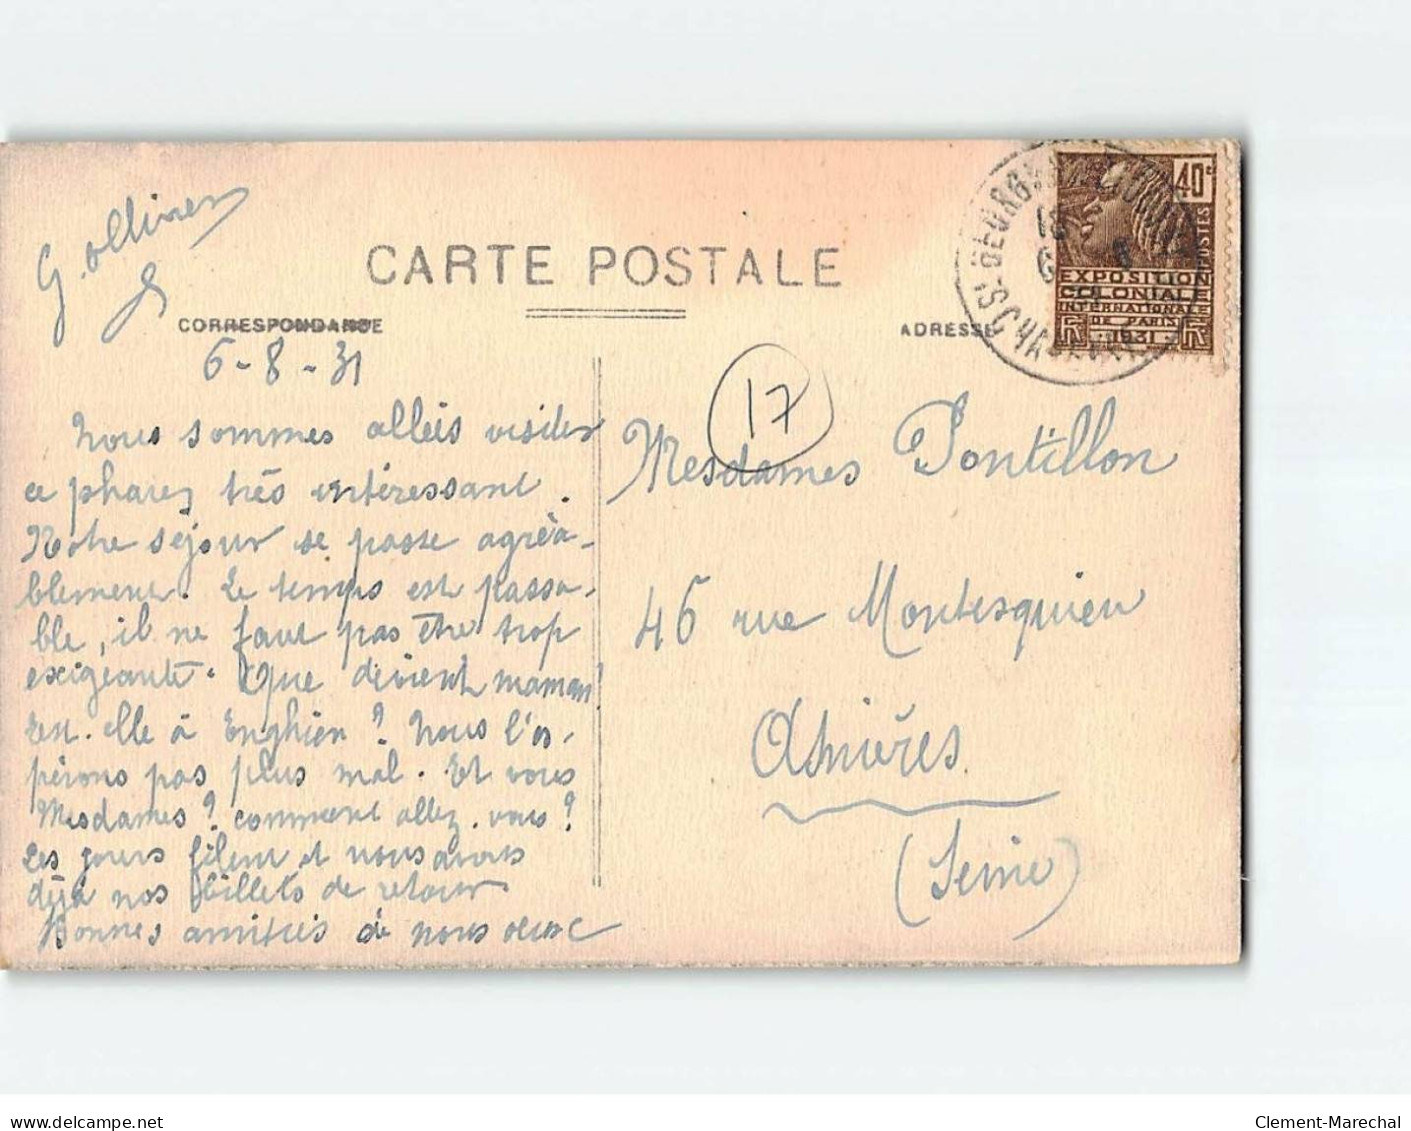 G. Ollivier
CARTE POSTALE
CORRESPONDANCE
ADRESSE
6-8-31
40c
POSTES
EXPOSITION
COLONIALE
INTERNATIONALE
DE PARIS
1931
17
Nous sommes allés visiter
ce phare, très intéressant.
Notre séjour se passe agréa-
blement. Le temps est passa-
ble, il ne faut pas être trop
exigeante. Que devient maman?
Est-elle à Enghien? Nous l'es-
pérons pas plus mal. Et vous
Mesdames? comment allez-vous?
Les jours filent et nous avons
déjà nos billets de retour
Bonnes amitiés de nous deux
Mesdames Pontillon
46 rue Montesquieu
Asnières
(Seine)
Clement-Marechal